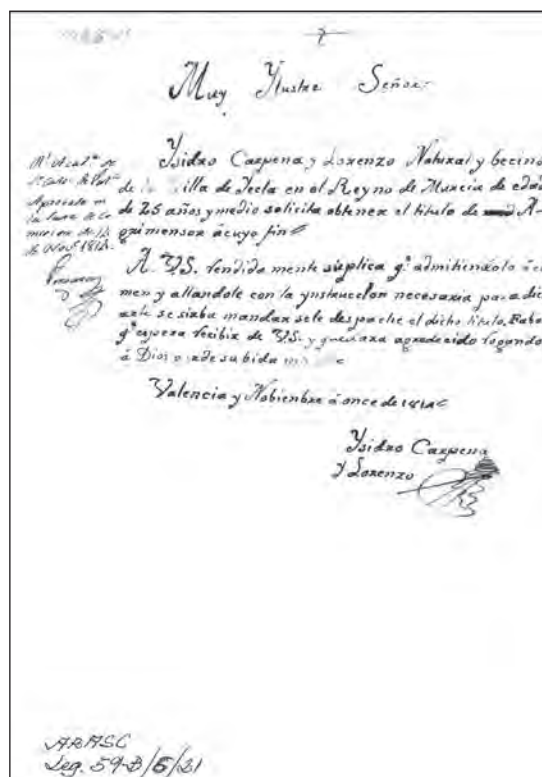 Muy Ylustre Señor:
Ysidro Carpena y Lorenzo Natural y becino
de la Villa de Yecla en el Reyno de Murcia de edad
de 25 años y medio solicita obtener el titulo de A-
grimensor à cuyo fin
A. V.S. rendida mente suplica q.e admitiendolo à exa
men y allandole con la ynstruccion necesaria para dic
arte se sirba mandar se le despache el dicho titulo. Fabo
q.e espera recibir de V.S. y quedara agradecido rogando
à Dios
Valencia y Nobienbre à once de 1814
Ysidro Carpena
y Lorenzo
de Nov.e 1814.
ARASC
Leg. 59-B/5/21